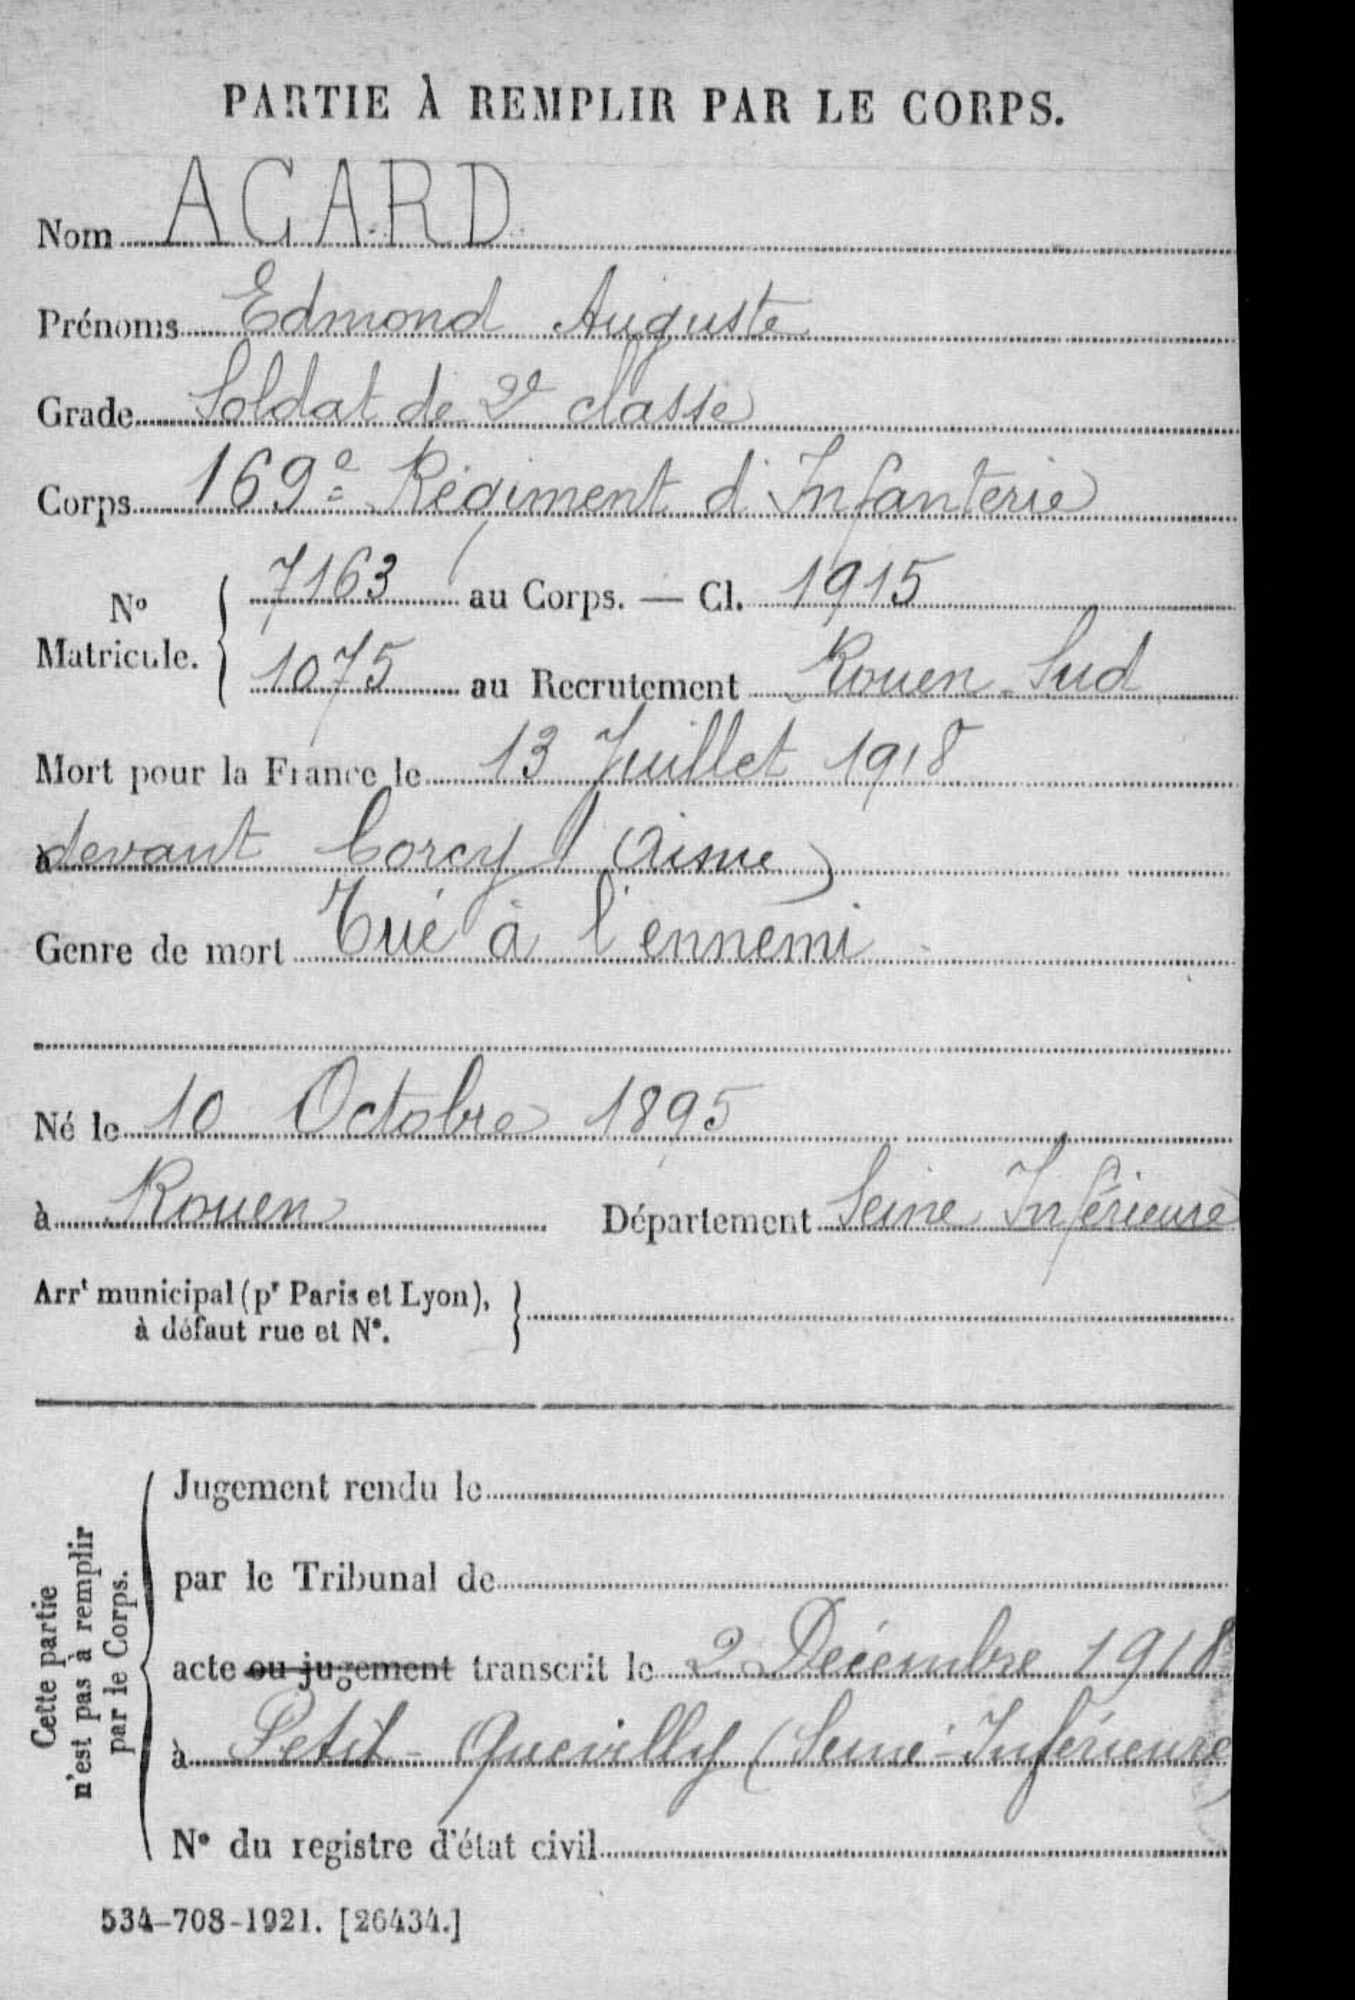 PARTIE À REMPLIR PAR LE CORPS.
Nom ACARD
Prénoms Edmond Auguste
Grade Soldat de 2e classe
Corps 169e Régiment d'Infanterie
No Matricule. { 7163 au Corps. — Cl. 1915
1075 au Recrutement Rouen-Sud
Mort pour la France le 13 Juillet 1918
à devant Corcy (Aisne)
Genre de mort Tué à l'ennemi
Né le 10 Octobre 1895
à Rouen Département Seine Inférieure
Arrt municipal (pr Paris et Lyon),
à défaut rue et No.
Cette partie
n'est pas à remplir
par le Corps.
Jugement rendu le
par le Tribunal de
acte ou jugement transcrit le 2 Décembre 1918
à Petit-Quevilly (Seine-Inférieure)
No du registre d'état civil
534-708-1921. [26434.]